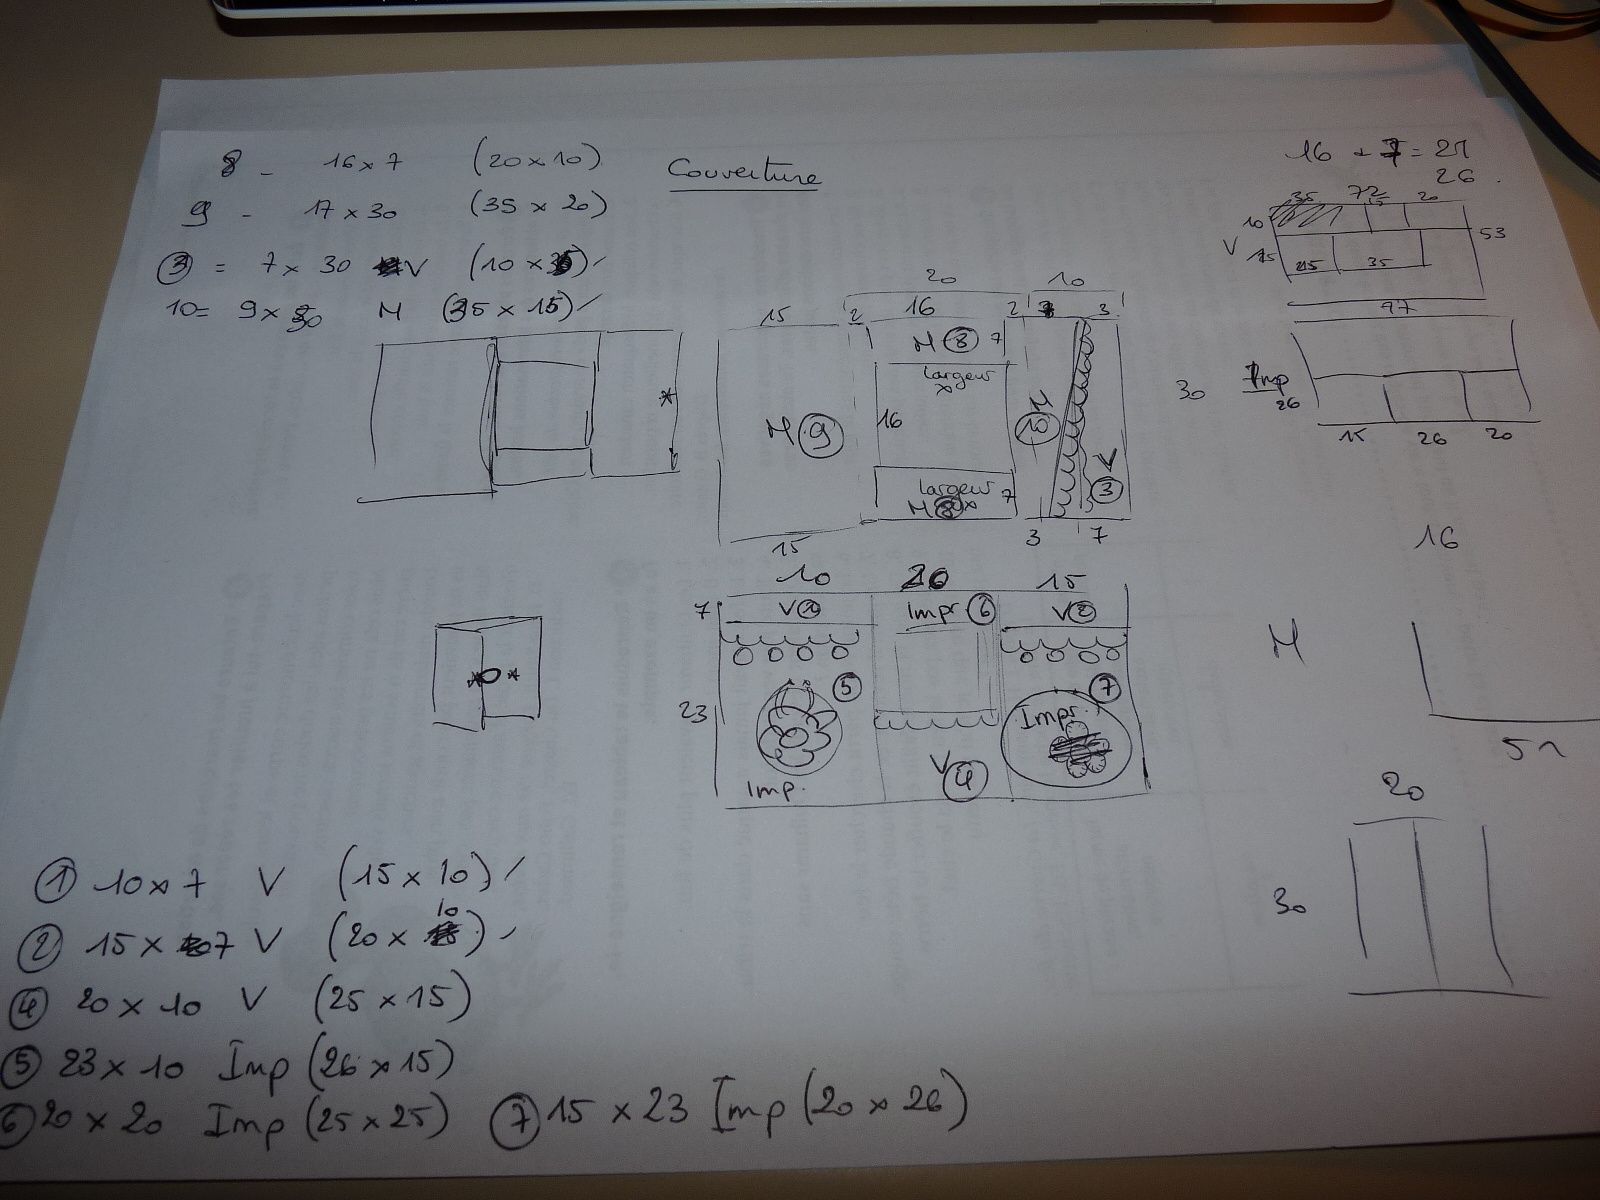 8 - 16 x 7 (20 x 10)
9 - 17 x 30 (35 x 20)
③ = 7 x 30 V (10 x 35)
10 = 9 x 30 M (35 x 15)
Couverture
16 + 7 = 21
26
35 72 15 20
10
53
V 15
25 35
97
Imp
30
26
15 26 20
20 10
15 2 16 2 3
M ⑧ 7
largeur
16
M ⑨
⑩ M
V
③
largeur 7
M ⑧
15
3 7
10 20 15
7 V ① Impr ⑥ V ②
⑤ ⑦
23
Impr.
V ④
Imp.
16
M
51
20
30
① 10 x 7 V (15 x 10)
② 15 x 7 V (20 x 10)
④ 20 x 10 V (25 x 15)
⑤ 23 x 10 Imp (26 x 15)
⑥ 20 x 20 Imp (25 x 25) ⑦ 15 x 23 Imp (20 x 26)